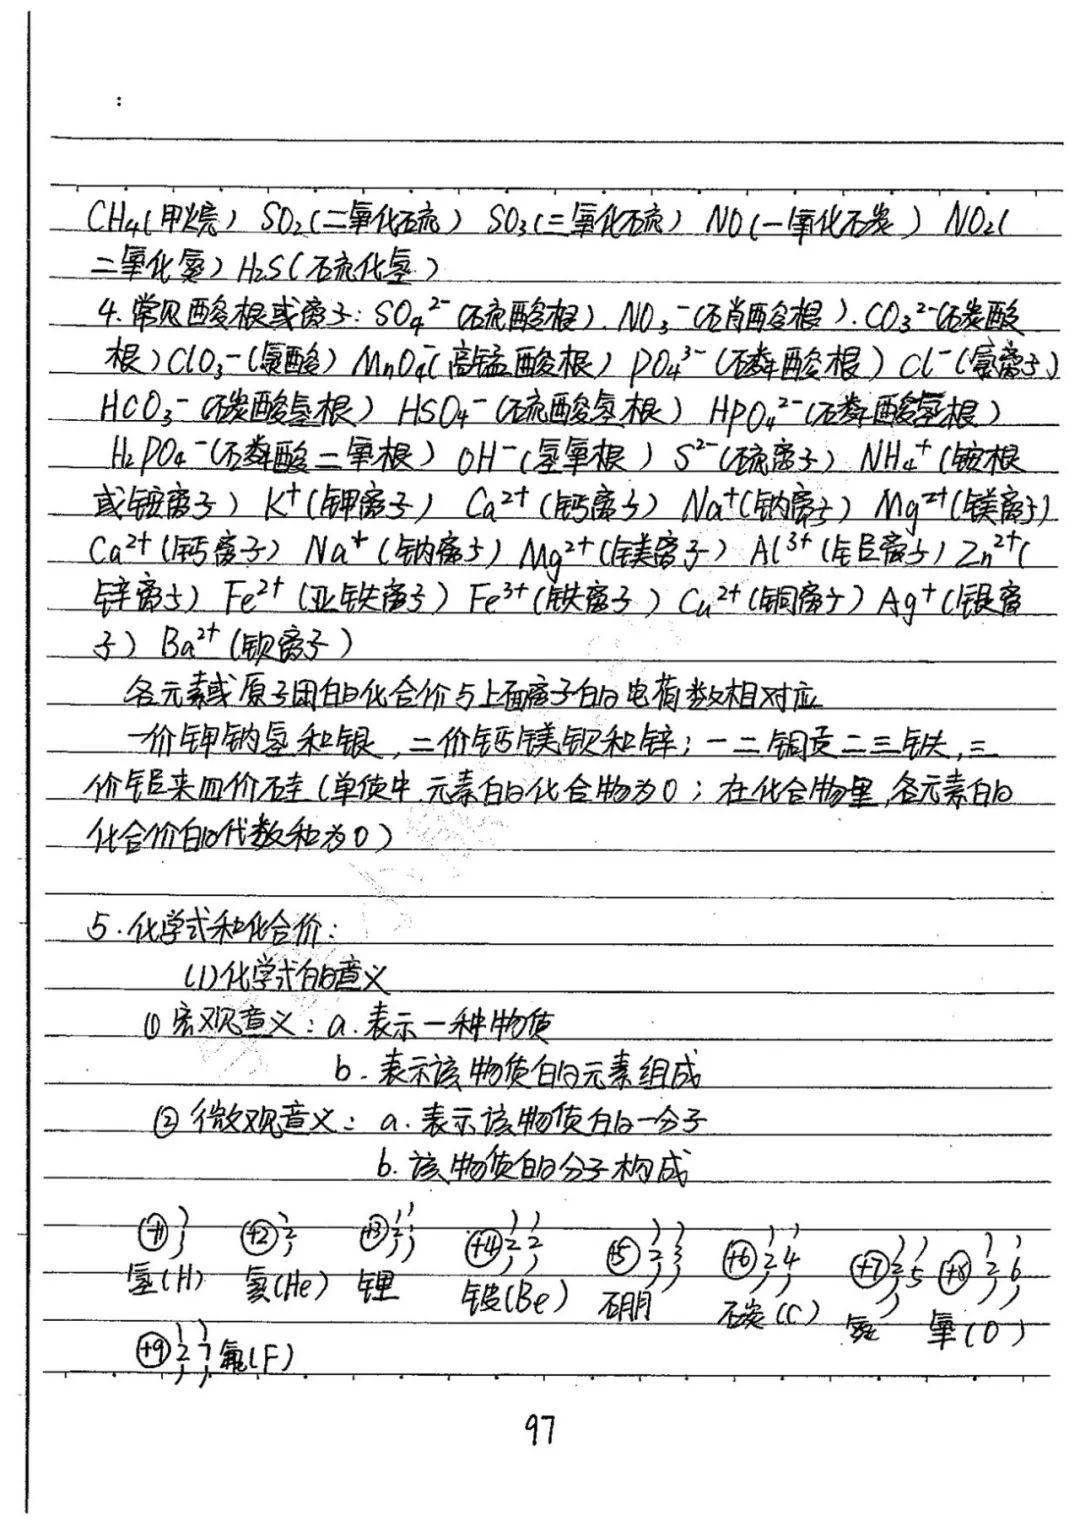 :
CH₄(甲烷) SO₂(二氧化硫) SO₃(三氧化硫) NO(一氧化碳) NO₂(
二氧化氮) H₂S(硫化氢)
4.常见酸根或离子: SO₄²⁻(硫酸根). NO₃⁻(硝酸根). CO₃²⁻(碳酸
根) ClO₃⁻(氯酸) MnO₄⁻(高锰酸根) PO₄³⁻(磷酸根) Cl⁻(氯离子)
HCO₃⁻(碳酸氢根) HSO₄⁻(硫酸氢根) HPO₄²⁻(磷酸氢根)
H₂PO₄⁻(磷酸二氧根) OH⁻(氢氧根) S²⁻(硫离子) NH₄⁺(铵根
或铵离子) K⁺(钾离子) Ca²⁺(钙离子) Na⁺(钠离子) Mg²⁺(镁离子)
Ca²⁺(钙离子) Na⁺(钠离子) Mg²⁺(镁离子) Al³⁺(铝离子) Zn²⁺(
锌离子) Fe²⁺(亚铁离子) Fe³⁺(铁离子) Cu²⁺(铜离子) Ag⁺(银离
子) Ba²⁺(钡离子)
各元素或原子团的化合价与上面离子的电荷数相对应
一价钾钠氢和银,二价钙镁钡和锌;一二铜汞二三铁,三
价铝来四价硅(单质中,元素的化合物为0;在化合物里,各元素的
化合价的代数和为0)
5.化学式和化合价:
(1)化学式的意义
①宏观意义:a.表示一种物质
b.表示该物质的元素组成
②微观意义:a.表示该物质的一分子
b.该物质的分子构成
+1 1 +2 2 +3 2 1 +4 2 2 +5 2 3 +6 2 4 +7 2 5 +8 2 6
氢(H) 氦(He) 锂 铍(Be) 硼 碳(C) 氮 氧(O)
+9 2 7 氟(F)
97